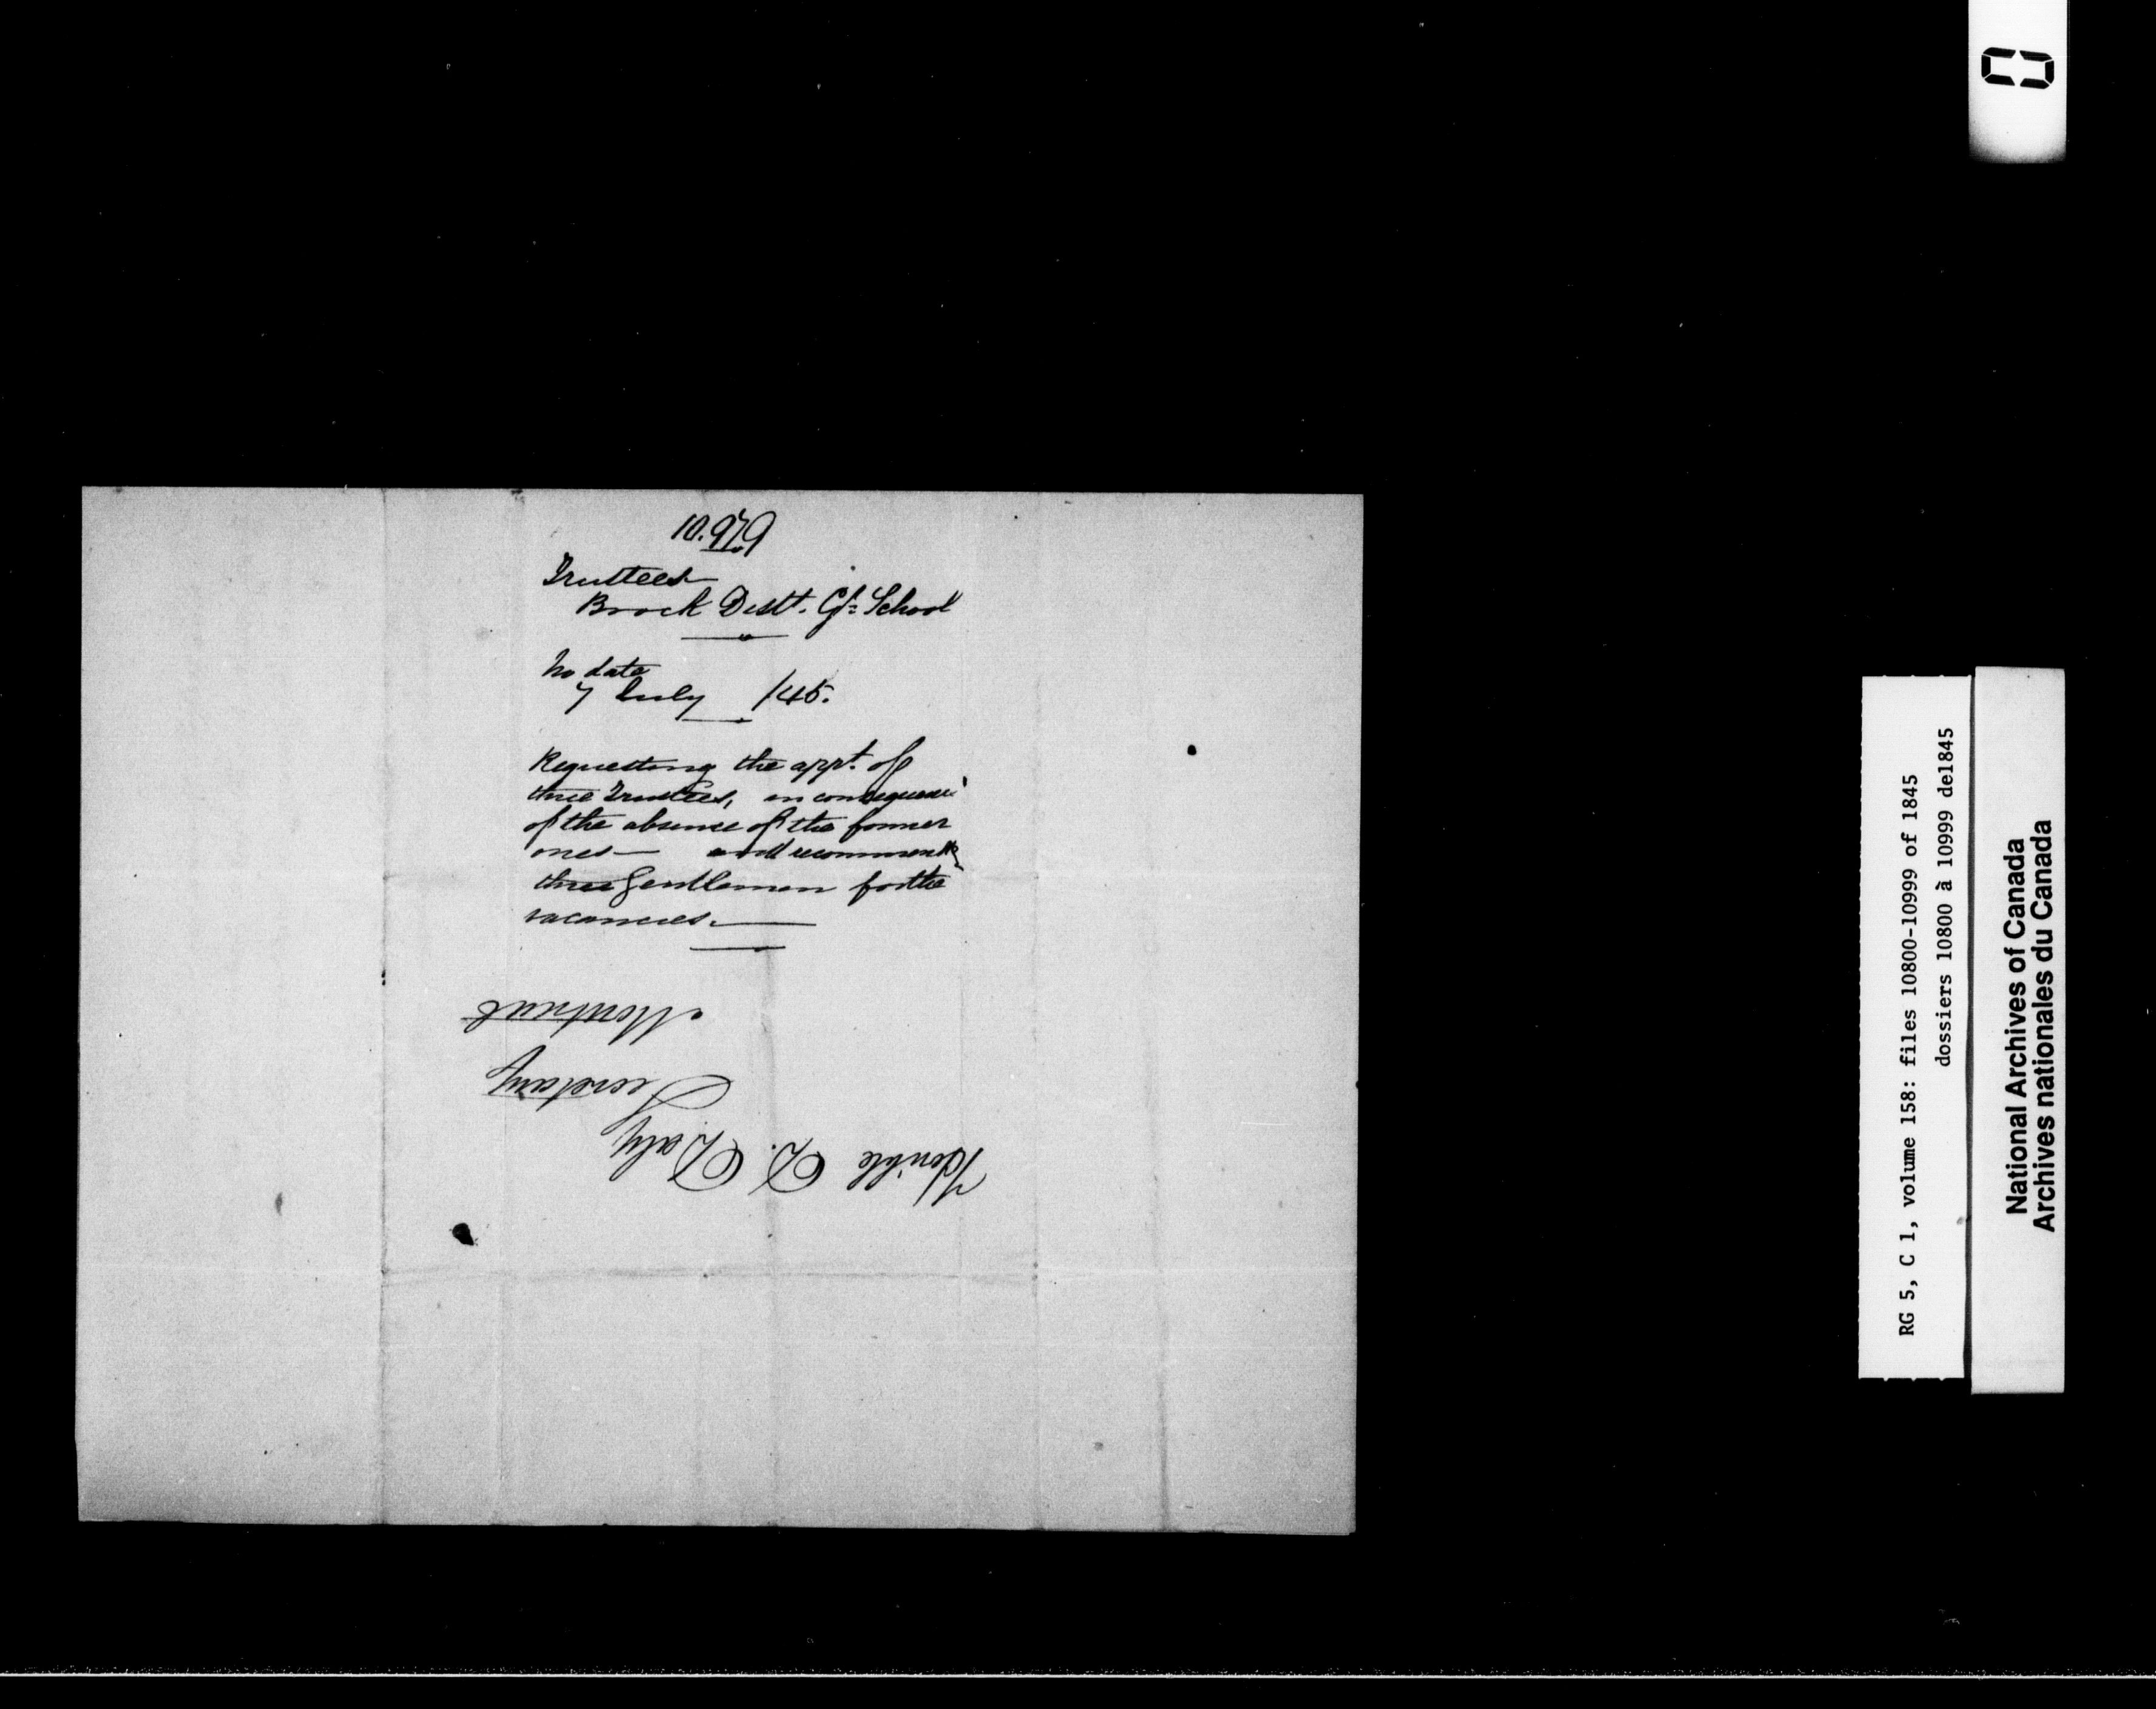 10.979
Trustees
Brock Distt. Gr. School
No date
7 July /45.
Requesting the appt. of
three Trustees, in consequence
of the absence of the former
ones — and recommends
three Gentlemen for the
vacancies.
Honble D. Daly
Secretary
Montreal
RG 5, C 1, volume 158: files 10800-10999 of 1845
dossiers 10800 à 10999 de1845
National Archives of Canada
Archives nationales du Canada